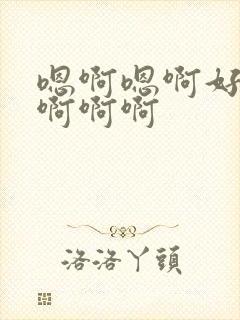 嗯啊嗯啊好
啊啊啊
洛洛丫頭